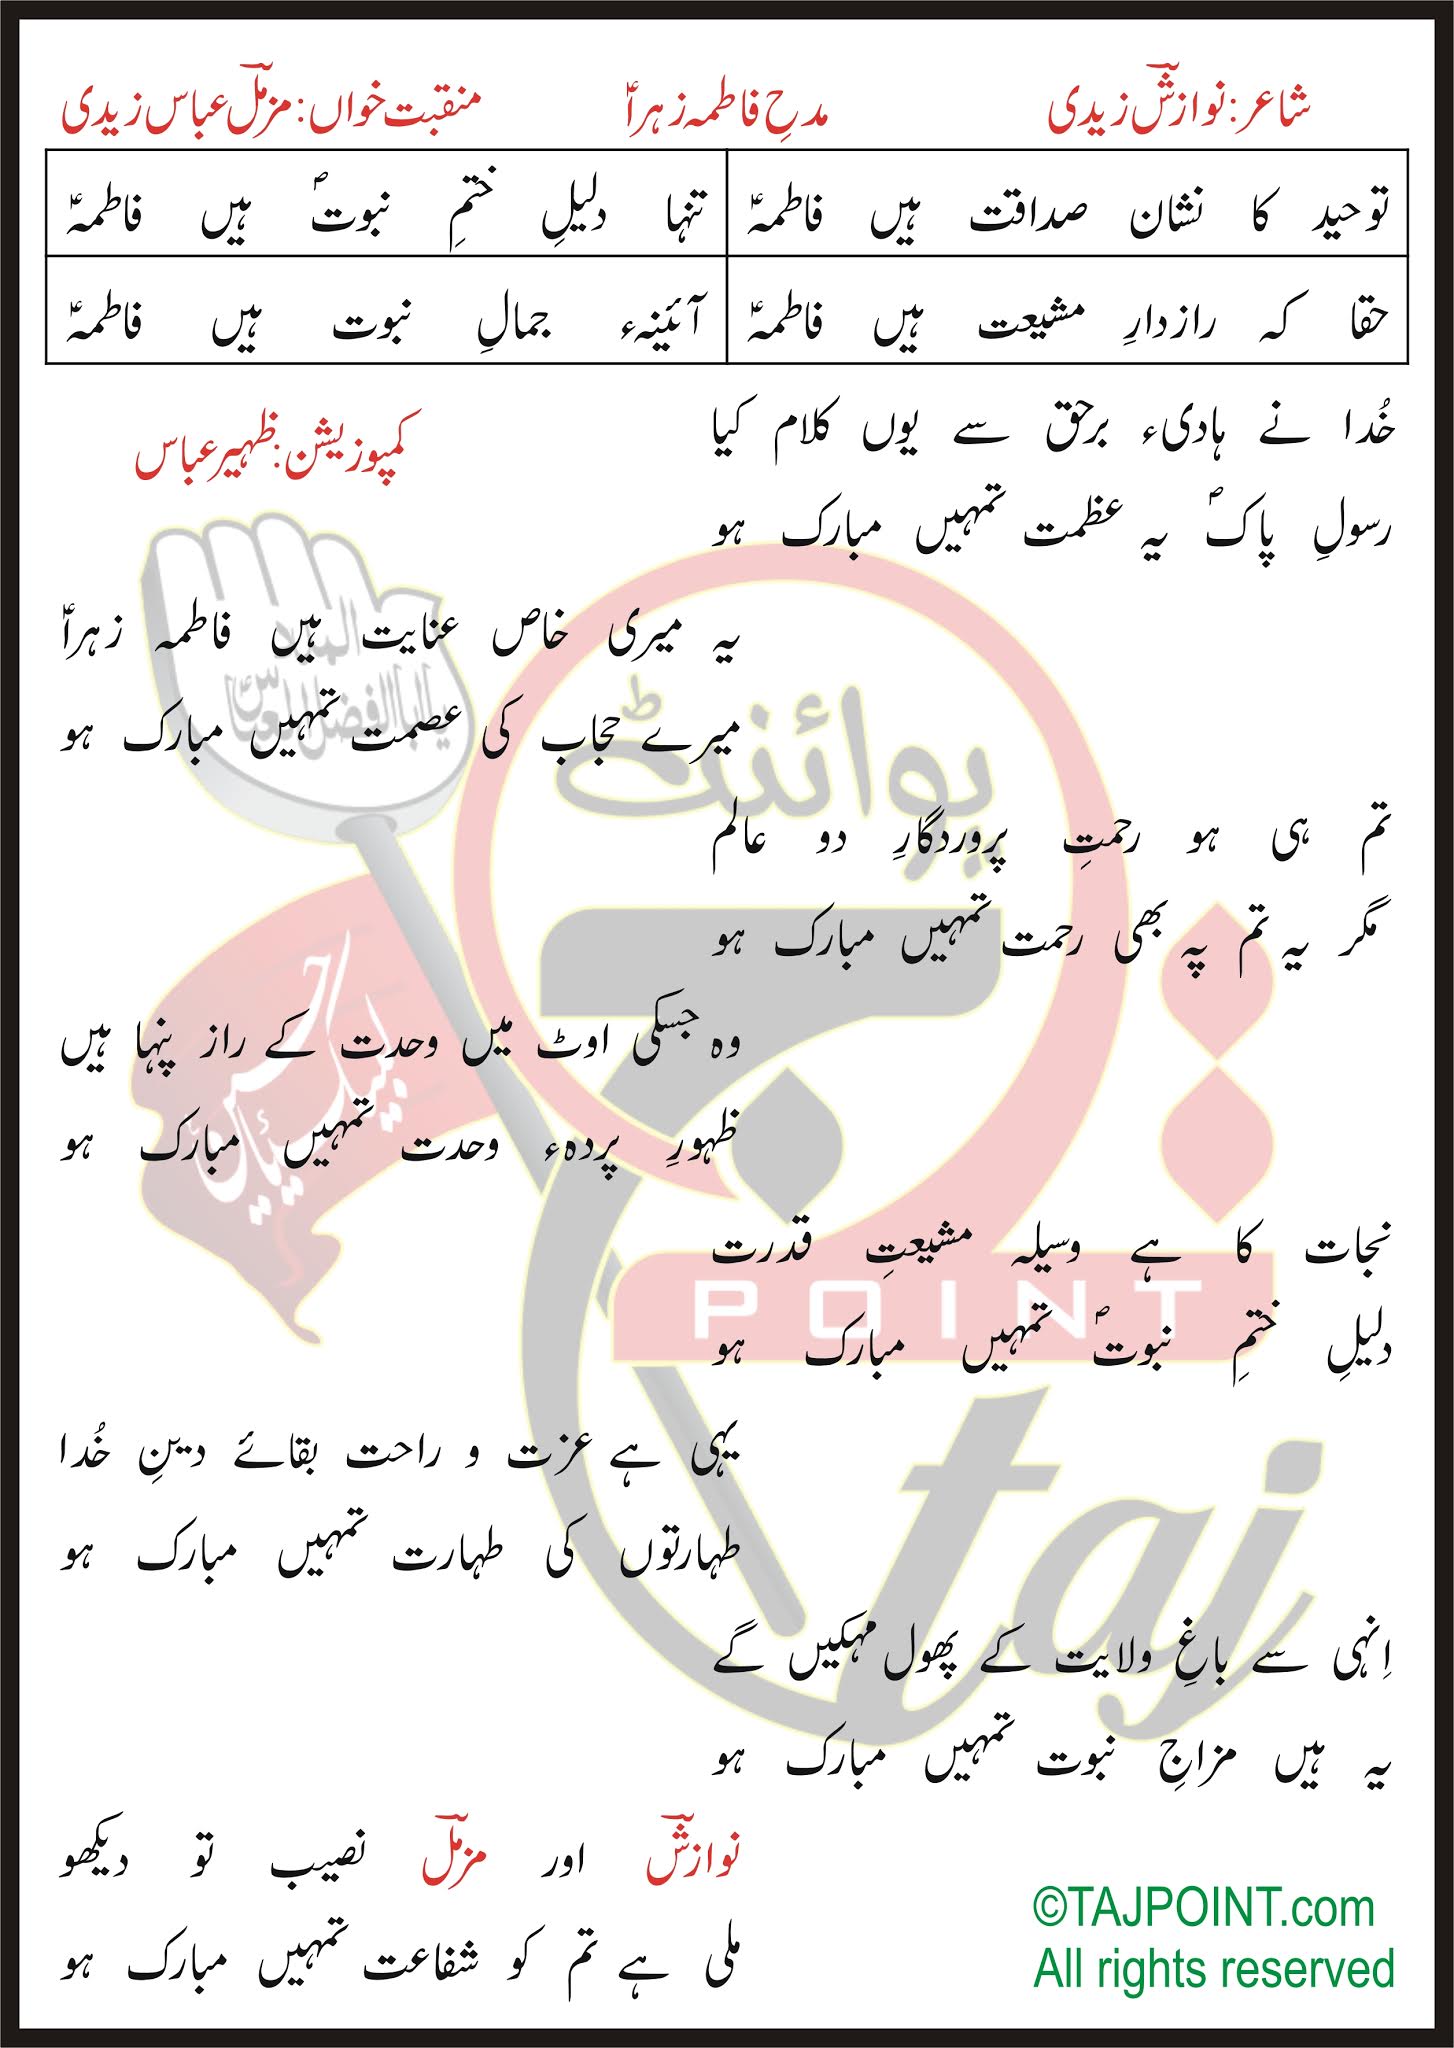 شاعر: نوازشؔ زیدی مدحِ فاطمہ زہراؑ منقبت خواں: مزملؔ عباس زیدی
توحید کا نشان صداقت ہیں فاطمہؑ تنہا دلیلِ ختمِ نبوتؐ ہیں فاطمہؑ
حقا کہ رازدارِ مشیعت ہیں فاطمہؑ آئینہء جمالِ نبوت ہیں فاطمہؑ
خُدا نے ہادیء برحق سے یوں کلام کیا
کمپوزیشن: ظہیر عباس
رسولِ پاکؐ یہ عظمت تمہیں مبارک ہو
یہ میری خاص عنایت ہیں فاطمہ زہراؑ
میرے حجاب کی عصمت تمہیں مبارک ہو
تم ہی ہو رحمتِ پروردگارِ دو عالم
مگر یہ تم پہ بھی رحمت تمہیں مبارک ہو
وہ جسکی اوٹ میں وحدت کے راز پنہا ہیں
ظہورِ پردہء وحدت تمہیں مبارک ہو
نجات کا ہے وسیلہ مشیعتِ قدرت
دلیلِ ختمِ نبوتؐ تمہیں مبارک ہو
یہی ہے عزت و راحت بقائے دینِ خُدا
طہارتوں کی طہارت تمہیں مبارک ہو
اِنہی سے باغِ ولایت کے پھول مہکیں گے
یہ ہیں مزاجِ نبوت تمہیں مبارک ہو
نوازشؔ اور مزملؔ نصیب تو دیکھو
ملی ہے تم کو شفاعت تمہیں مبارک ہو
©TAJPOINT.com
All rights reserved
پوائنٹ
تاج
POINT
taj
یا ابا الفضل العباس
لبیک یا حسین